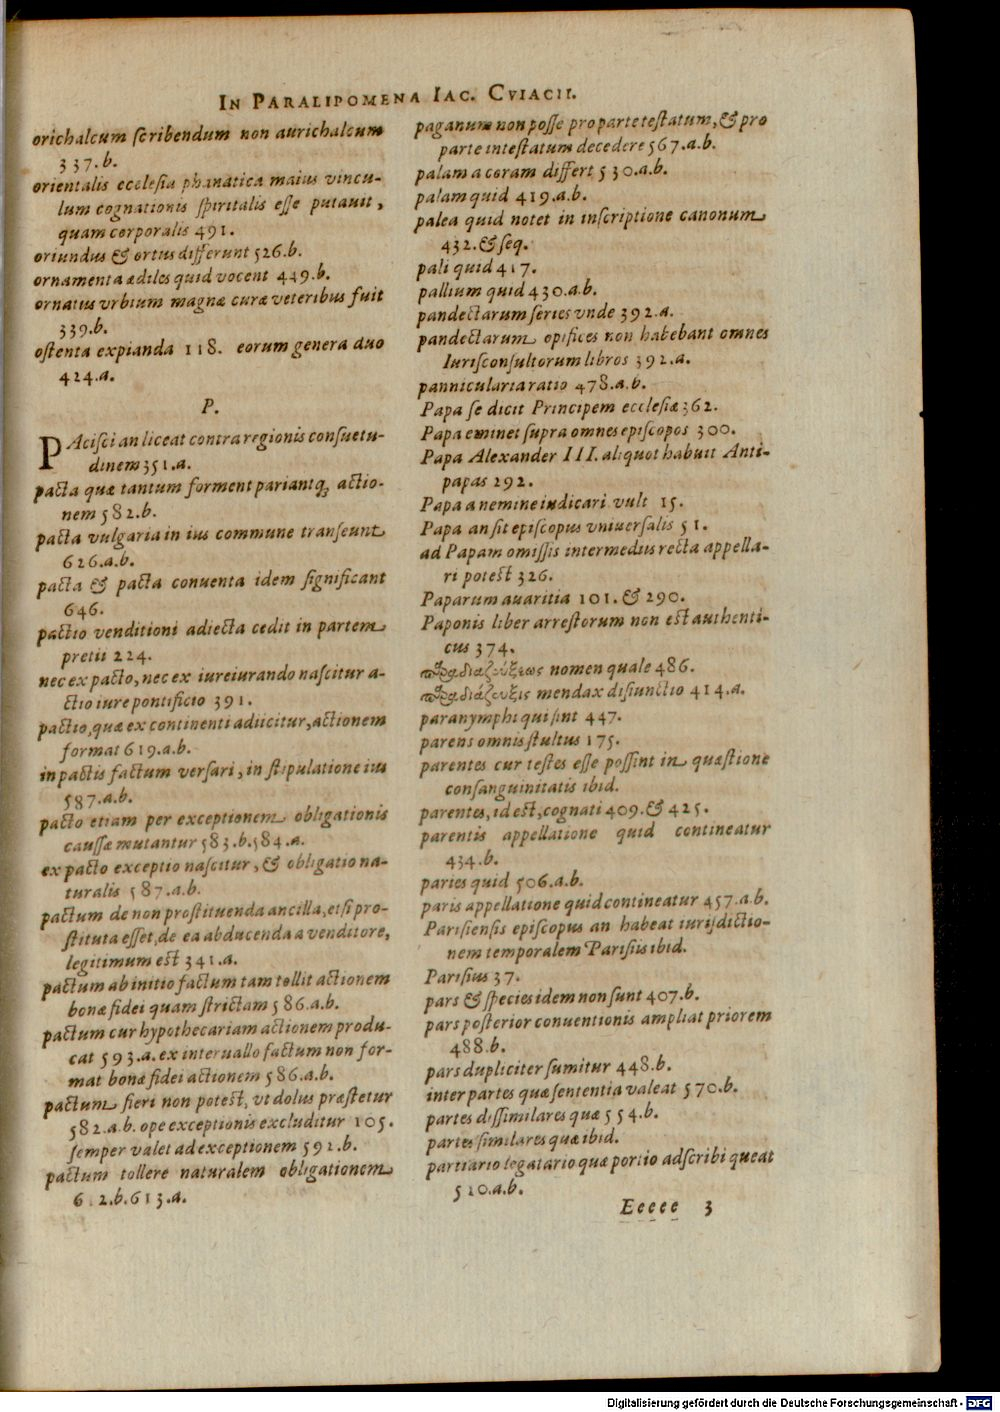 IN PARALIPOMENA IAC. CVIACII.
orichalcum scribendum non aurichalcum
337.b.
orientalis ecclesia phanatica maius vincu-
lum cognationis spiritalis esse putauit,
quam corporalis 491.
oriundus & ortus differunt 526.b.
ornamenta ædiles quid vocent 449.b.
ornatus vrbium magnæ curæ veteribus fuit
339.b.
ostenta expianda 118. eorum genera duo
424.a.
P.
PAcisci an liceat contra regionis consuetu-
dinem 351.a.
pacta quæ tantum forment pariantq; actio-
nem 582.b.
pacta vulgaria in ius commune transeunt
626.a.b.
pacta & pacta conuenta idem significant
646.
pactio venditioni adiecta cedit in partem
pretii 224.
nec ex pacto, nec ex iureiurando nascitur a-
ctio iure pontificio 391.
pactio, quæ ex continenti adiicitur, actionem
format 619.a.b.
in pactis factum versari, in stipulatione ius
587.a.b.
pacto etiam per exceptionem obligationis
caussæ mutantur 583.b. 584.a.
ex pacto exceptio nascitur, & obligatio na-
turalis 587.a.b.
pactum de non prostituenda ancilla, etsi pro-
stituta esset, de ea abducenda a venditore,
legitimum est 341.a.
pactum ab initio factum tam tollit actionem
bonæ fidei quam strictam 586.a.b.
pactum cur hypothecariam actionem produ-
cat 593.a. ex interuallo factum non for-
mat bonæ fidei actionem 586.a.b.
pactum fieri non potest, vt dolus præstetur
582.a.b. ope exceptionis excluditur 105.
semper valet ad exceptionem 592.b.
pactum tollere naturalem obligationem
612.b. 613.a.
paganum non posse pro parte testatum, & pro
parte intestatum decedere 567.a.b.
palam a coram differt 530.a.b.
palam quid 419.a.b.
palea quid notet in inscriptione canonum
432. & seq.
pali quid 417.
pallium quid 430.a.b.
pandectarum series vnde 392.a.
pandectarum opifices non habebant omnes
Iurisconsultorum libros 392.a.
pannicularia ratio 478.a.b.
Papa se dicit Principem ecclesiæ 362.
Papa eminet supra omnes episcopos 300.
Papa Alexander III. aliquot habuit Anti-
papas 292.
Papa a nemine iudicari vult 15.
Papa an sit episcopus vniuersalis 51.
ad Papam omissis intermediis recta appella-
ri potest 326.
Paparum auaritia 101. & 290.
Paponis liber arrestorum non est authenti-
cus 374.
παραδιαζεύξεως nomen quale 486.
παραδιάζευξις mendax disiunctio 414.a.
paranymphi qui sint 447.
parens omnis stultus 175.
parentes cur testes esse possint in quæstione
consanguinitatis ibid.
parentes, id est, cognati 409. & 425.
parentis appellatione quid contineatur
434.b.
paries quid 506.a.b.
paris appellatione quid contineatur 457.a.b.
Parisiensis episcopus an habeat iurisdictio-
nem temporalem Parisiis ibid.
Parisius 37.
pars & species idem non sunt 407.b.
pars posterior conuentionis ampliat priorem
488.b.
pars dupliciter sumitur 448.b.
inter partes quæ sententia valeat 570.b.
partes dissimilares quæ 554.b.
partes similares quæ ibid.
partiario legatario quæ portio adscribi queat
510.a.b.
Eeeee 3
Digitalisierung gefördert durch die Deutsche Forschungsgemeinschaft - DFG